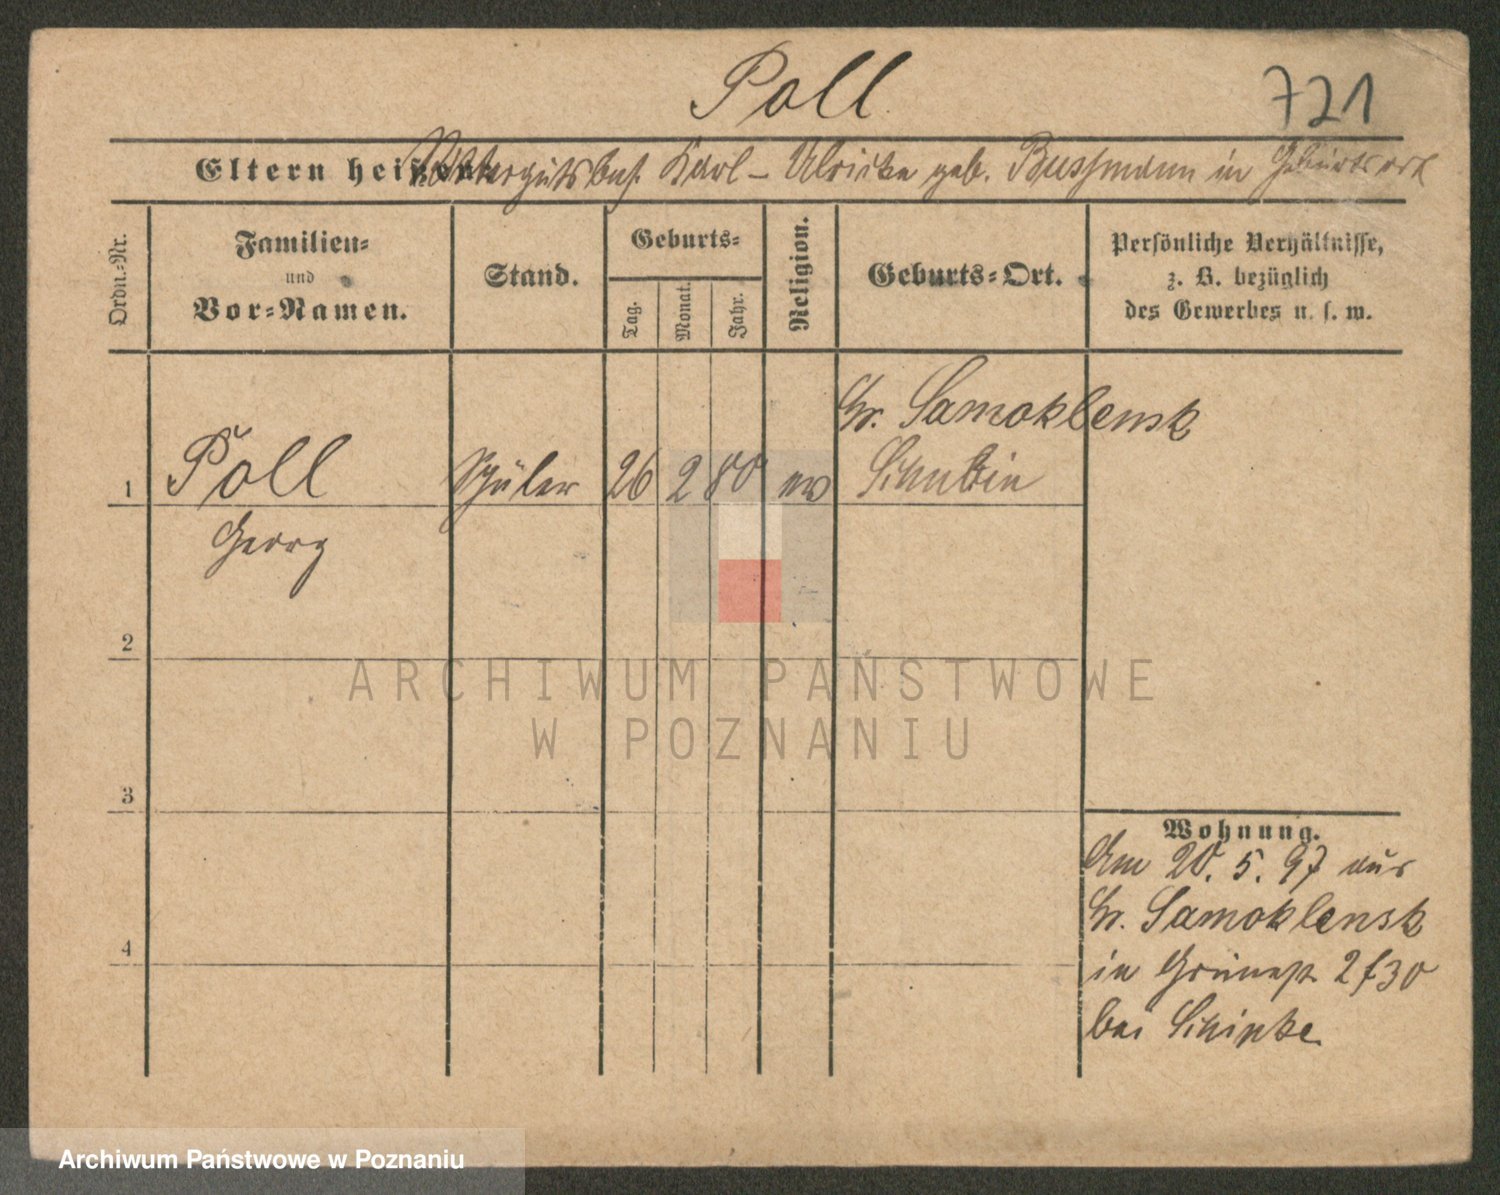 Poll
721
Eltern heißen: Rittergutsbes. Karl - Ulricke geb. Bussmann in Geburtsort
Ordn.-Nr.
Familien-
und
Vor-Namen.
Stand.
Geburts-
Tag.
Monat.
Jahr.
Religion.
Geburts-Ort.
Persönliche Verhältnisse,
z. B. bezüglich
des Gewerbes u. s. w.
Gr. Samoklensk
1 Poll Schüler 26 2 80 ev Schubin
Georg
2
ARCHIWUM PAŃSTWOWE
W POZNANIU
3
Wohnung.
Am 20. 5. 97 aus
Gr. Samoklensk
4
in Grünest. 2
bei Schipke
Archiwum Państwowe w Poznaniu